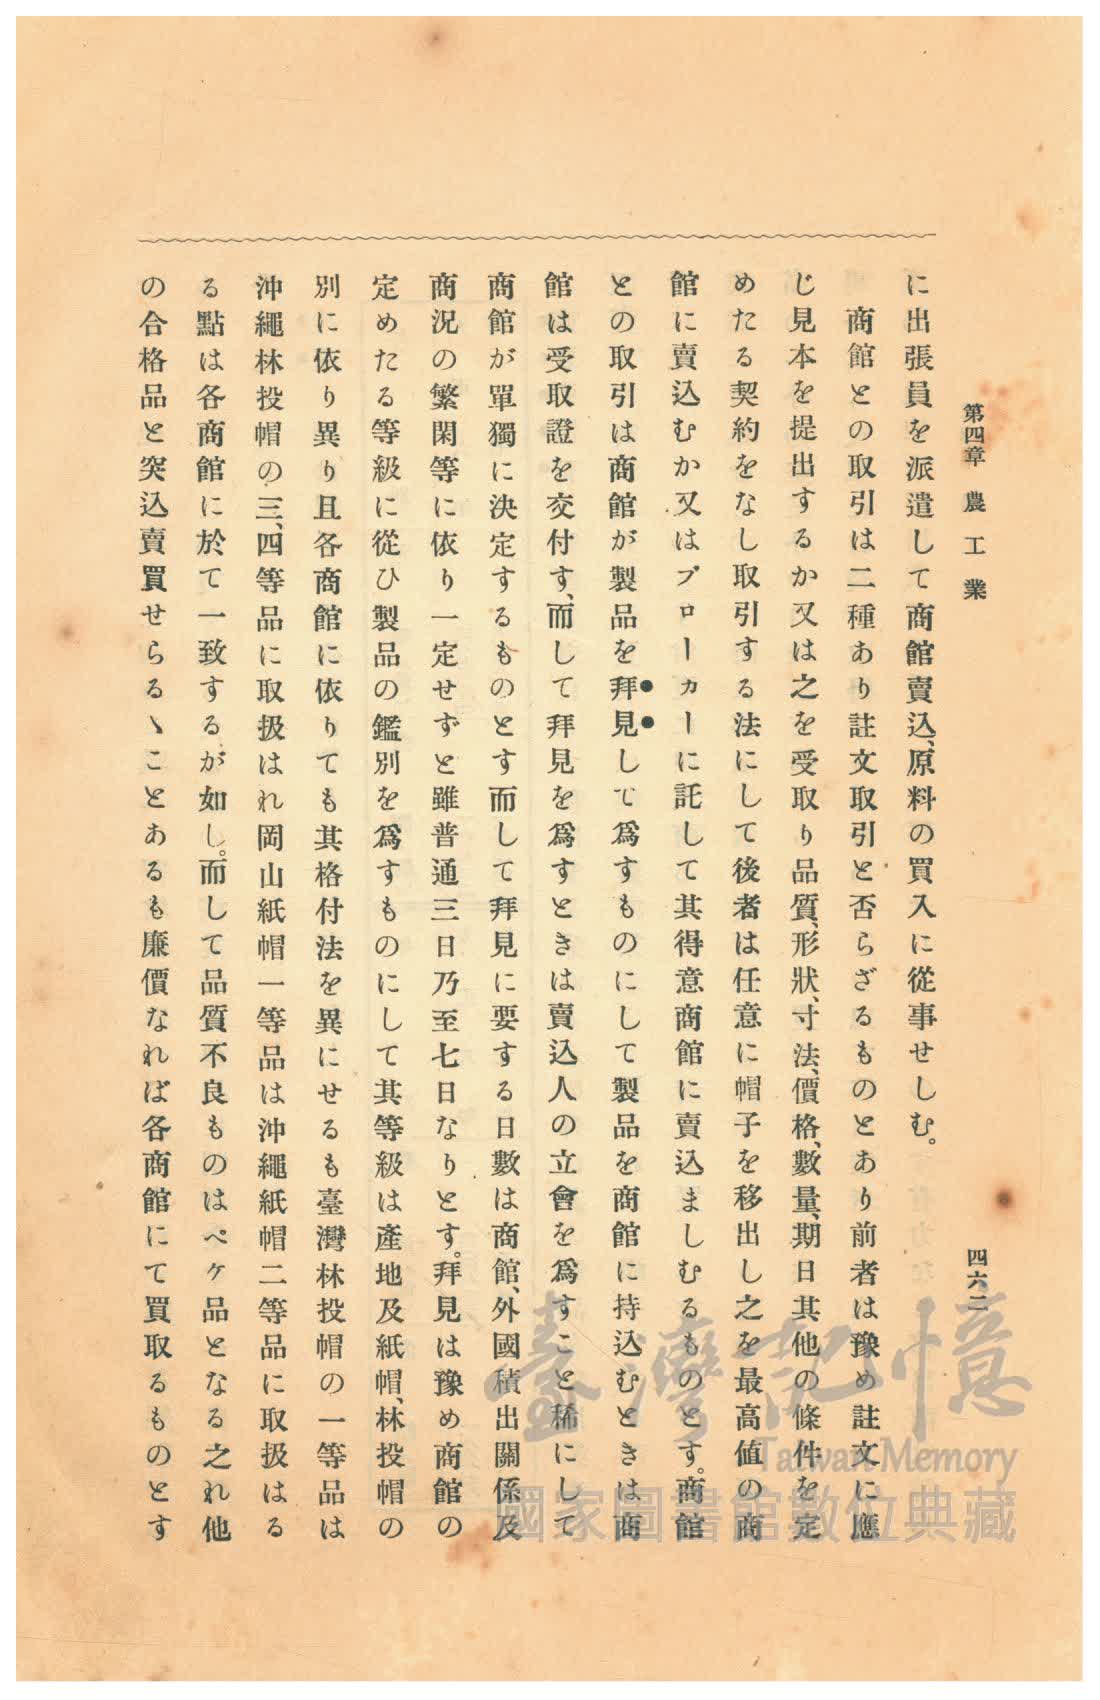 第四章 農工業
四六二
に出張員を派遣して商館賣込、原料の買入に從事せしむ。
商館との取引は二種あり註文取引と否らざるものとあり前者は豫め註文に應
じ見本を提出するか又は之を受取り品質、形狀、寸法、價格、數量、期日其他の條件を定
めたる契約をなし取引する法にして後者は任意に帽子を移出し之を最高値の商
館に賣込むか又はブローカーに託して其得意商館に賣込ましむるものとす。商館
との取引は商館が製品を拜見して爲すものにして製品を商館に持込むときは商
館は受取證を交付す、而して拜見を爲すときは賣込人の立會を爲すこと稀にして
商館が單獨に決定するものとす而して拜見に要する日數は商館、外國積出關係及
商況の繁閑等に依り一定せずと雖普通三日乃至七日なりとす。拜見は豫め商館の
定めたる等級に從ひ製品の鑑別を爲すものにして其等級は產地及紙帽、林投帽の
別に依り異り且各商館に依りても其格付法を異にせるも臺灣林投帽の一等品は
沖繩林投帽の三、四等品に取扱はれ岡山紙帽一等品は沖繩紙帽二等品に取扱はる
る點は各商館に於て一致するが如し。而して品質不良ものはペケ品となる之れ他
の合格品と突込賣買せらるゝことあるも廉價なれば各商館にて買取るものとす
臺灣記憶
Taiwan Memory
國家圖書館數位典藏